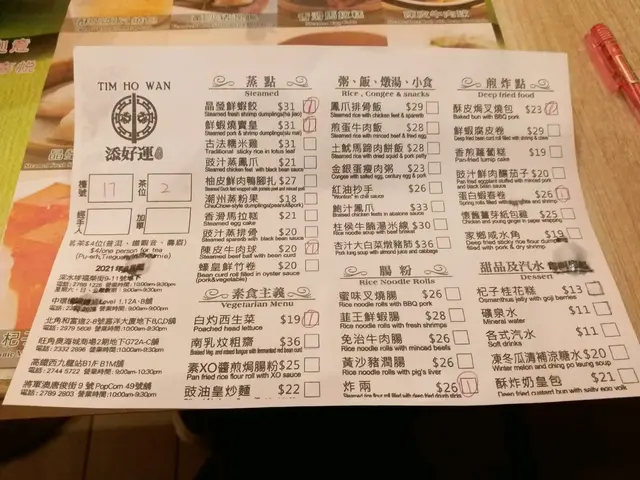 TIM HO WAN
添好運
檯號 17 茶位 2
經手人 加單
茗茶$4位(普洱、鐵觀音、壽眉)
$4/one person for tea
2021年
深水埗福榮街9-11號地下
電話 : 2788 1226 營業時間 : 10:00am-9:30pm
Level 1,12A-B舖
北角和富道2-8號嘉洋大廈地下B,C,D舖
電話 : 2979 5608 營業時間 : 10:00am-9:30pm
旺角奧海城南場2期地下G72A-C舖
電話 : 2332 2896 營業時間 : 10:00am-9:30pm
高鐵西九龍站B1/F B1M舖
電話 : 2744 5722 營業時間 : 9:00am-10:30pm
將軍澳唐俊街 9 號 PopCorn 49號舖
電話 : 2789 2803 營業時間 : 10:00am-9:30pm
蒸點
Steamed
晶瑩鮮蝦餃 $31
Steamed fresh shrimp dumplings(ha jiao)
鮮蝦燒賣皇 $31
Steamed pork & shrimp dumplings(siu mai)
古法糯米雞 $31
Traditional sticky rice in lotus leaf
豉汁蒸鳳爪 $21
Steamed chicken feet with black bean sauce
柚皮鮮肉鴨腳扎 $27
潮州蒸粉果 $18
ChiuChow-style dumplings(peanuts&pork)
香滑馬拉糕 $21
Steamed egg cake
豉汁蒸排骨 $20
Steamed sparerib with black bean sauce
陳皮牛肉球 $20
Steamed beef ball with bean curd
蠔皇鮮竹卷 $20
Bean curd rolled filled in oyster sauce
(pork&vegetable)
素食主義
Vegetarian Menu
白灼西生菜 $19
Poached head lettuce
南乳炆粗齋 $36
Braised Veg. and mixed fungus with fermented red bean curd
素XO醬煎焗腸粉 $25
Pan fried rice flour roll with XO sauce
豉油皇炒麵 $22
粥、飯、燉湯、小食
Rice , Congee & snacks
鳳爪排骨飯 $29
Steamed rice with chicken feet & sparerib
煎蛋牛肉飯 $28
Steamed rice with minced beef & fried egg
土魷馬蹄肉餅飯 $28
Steamed rice with dried squid & pork patty
金銀蛋瘦肉粥 $23
Congee with salted egg, century egg & pork
紅油抄手 $26
"Wonton" in chili sauce
鮑汁鳳爪 $33
Braised chicken feets in abalone sauce
柱侯牛腩湯米線 $30
Rice noodle soup with beef brisket
杏汁大白菜燉豬肺 $36
Pork lung soup with almond and chinese cabbage
腸粉
Rice Noodle Rolls
蜜味叉燒腸 $26
Rice noodle rolls with BBQ pork
韮王鮮蝦腸 $28
Rice noodle rolls with fresh shrimps
免治牛肉腸 $26
Rice noodle rolls with minced beefs
黃沙豬潤腸 $26
Rice noodle rolls with pig's liver
炸兩 $26
煎炸點
Deep fried food
酥皮焗叉燒包 $23
Baked bun with BBQ pork
鮮蝦腐皮卷 $29
Deep fried bean curd roll filled with shrimp & chive
香煎蘿蔔糕 $19
Pan-fried turnip cake
豉汁鮮肉釀茄子 $20
Pan fried eggplant stuffed with minced pork
and black bean sauce
蛋白蝦春卷 $26
懷舊薑芽紙包雞 $25
Chicken and young ginger in paper wrapping
家鄉咸水角 $19
Deep fried sticky rice flour dumpling
filled with pork & dry shrimp
甜品及汽水
Dessert
杞子桂花糕 $13
Osmanthus jelly with goji berries
礦泉水 $11
Mineral water
各式汽水 $11
Soft drink
凍冬瓜清補涼糖水 $20
Winter melon and ching po leung sweet
酥炸奶皇包 $21
Deep fried custard bun with salty egg yolk